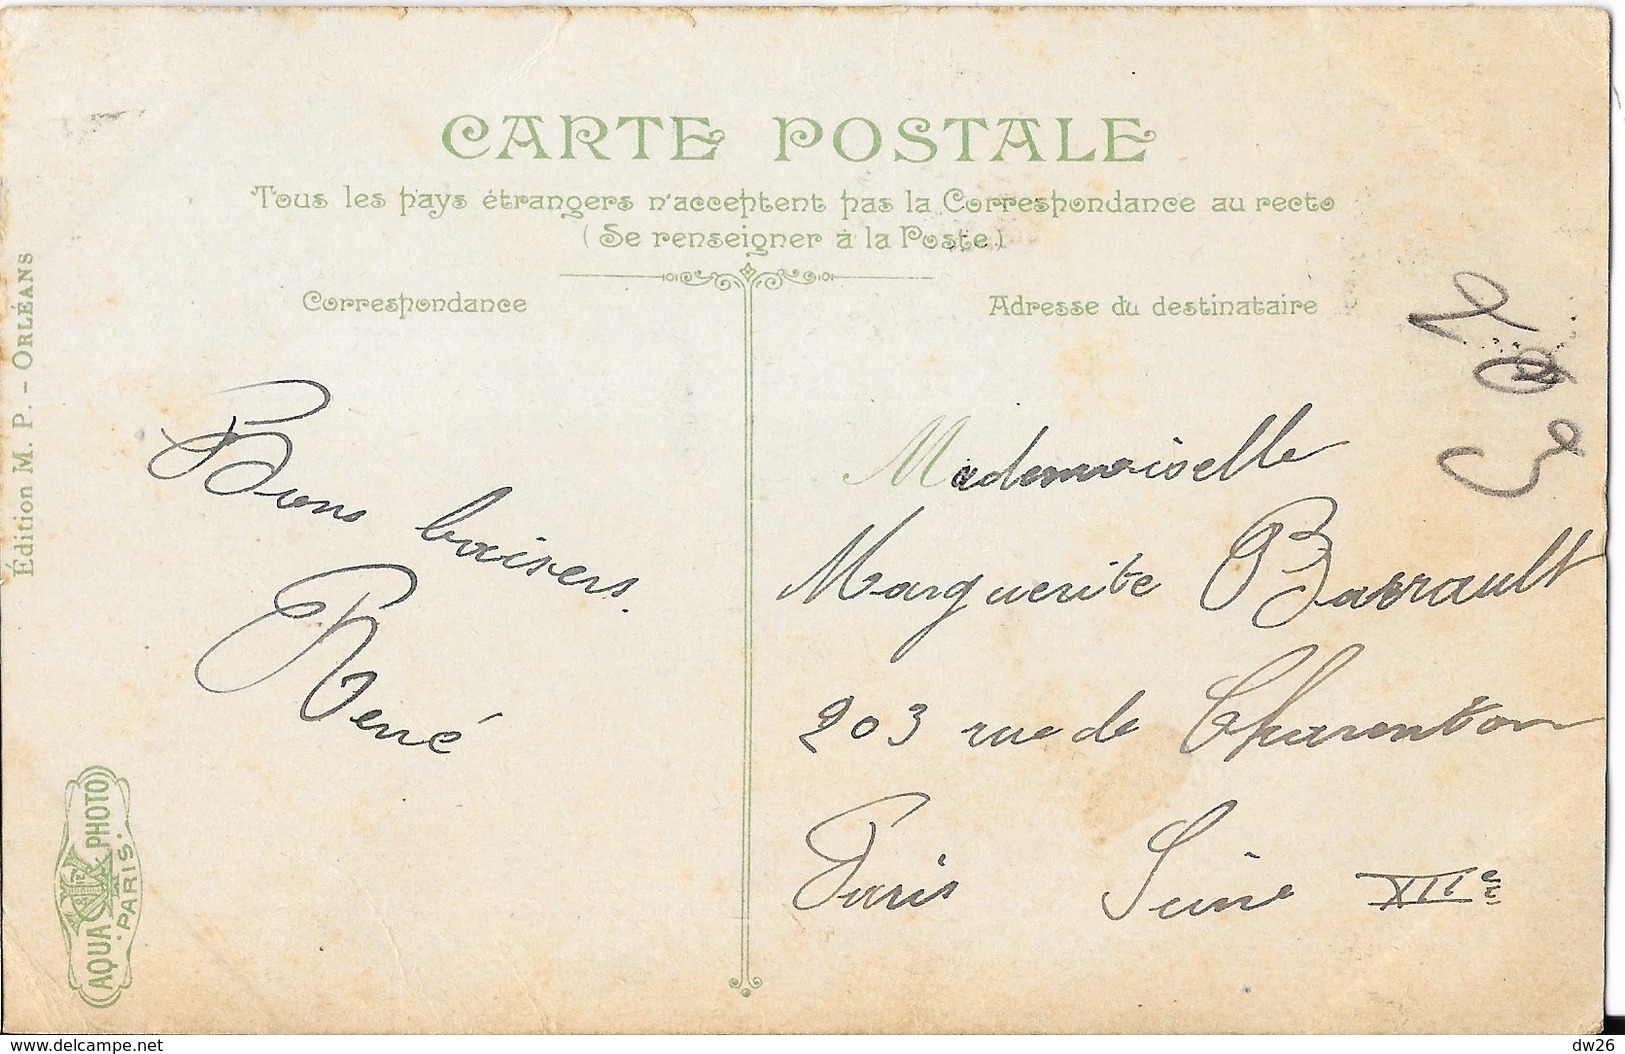 CARTE POSTALE
Tous les pays étrangers n'acceptent pas la Correspondance au recto
(Se renseigner à la Poste)
Correspondance
Adresse du destinataire
Édition M. P. - ORLÉANS
Bons baisers.
René
Mademoiselle
Marguerite Barrault
203 rue de Charenton
Paris Seine XIIe
203
AQUA PHOTO
PARIS.
www.delcampe.net
dw26